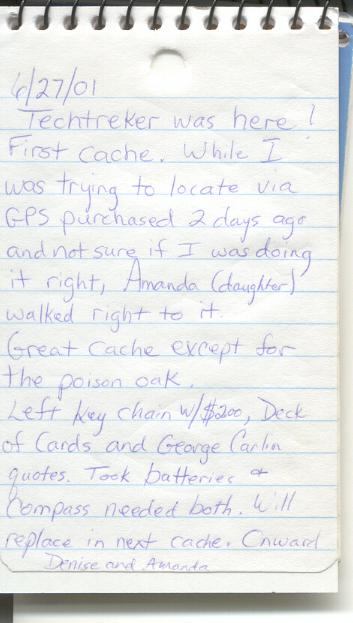 6/27/01
Techtreker was here!
First cache. While I
was trying to locate via
GPS purchased 2 days ago
and not sure if I was doing
it right, Amanda (daughter)
walked right to it.
Great cache except for
the poison oak.
Left key chain w/$200, Deck
of Cards and George Carlin
quotes. Took batteries &
Compass needed both. Will
replace in next cache. Onward
Denise and Amanda